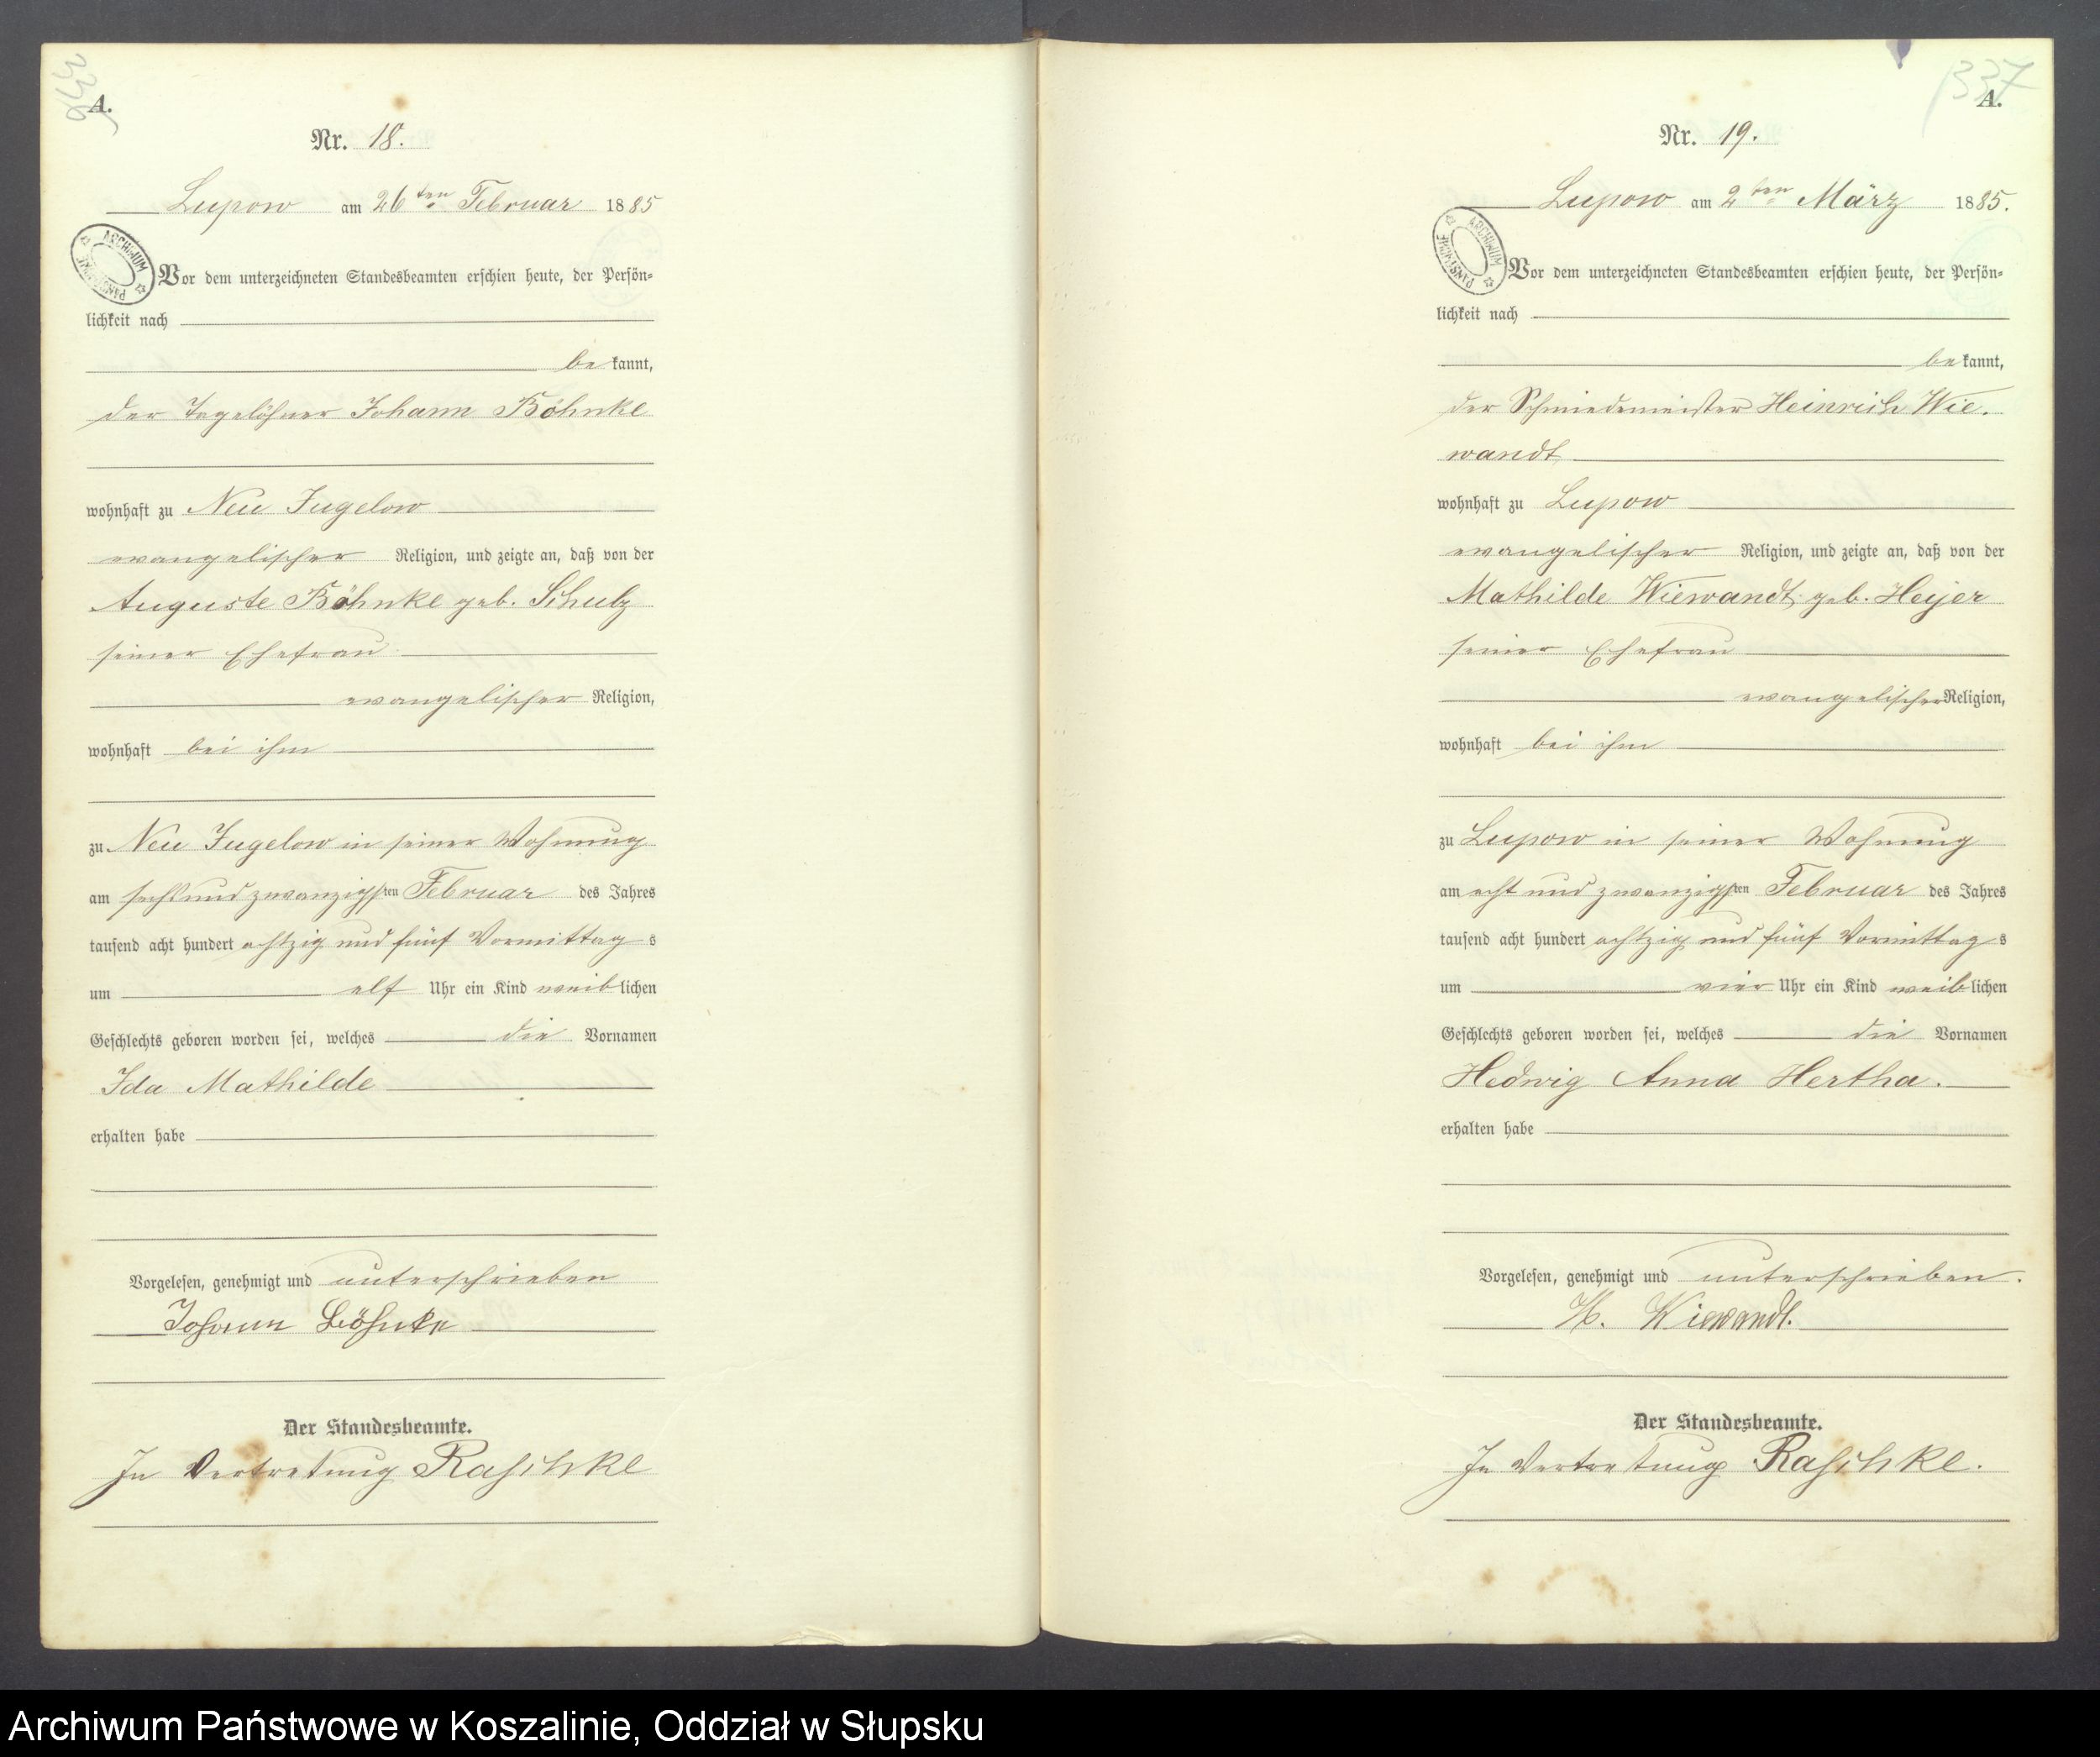 336
A.
Nr. 18.
Lupow am 26ten Februar 1885
ARCHIWUM PAŃSTWOWE
Vor dem unterzeichneten Standesbeamten erschien heute, der Persön-
lichkeit nach
be kannt,
der Tagelöhner Johann Böhnke
wohnhaft zu Neu Jugelow
evangelischer Religion, und zeigte an, daß von der
Auguste Böhnke geb. Schulz
seiner Ehefrau
evangelischer Religion,
wohnhaft bei ihm
zu Neu Jugelow in seiner Wohnung
am sechsundzwanzigsten Februar des Jahres
tausend acht hundert achtzig und fünf Vormittag s
um elf Uhr ein Kind weib lichen
Geschlechts geboren worden sei, welches die Vornamen
Ida Mathilde
erhalten habe
Vorgelesen, genehmigt und unterschrieben
Johann Böhnke
Der Standesbeamte.
In Vertretung Raschke
337
A.
Nr. 19.
Lupow am 2ten März 1885.
ARCHIWUM PAŃSTWOWE
Vor dem unterzeichneten Standesbeamten erschien heute, der Persön-
lichkeit nach
be kannt,
der Schmiedemeister Heinrich Wie-
wandt
wohnhaft zu Lupow
evangelischer Religion, und zeigte an, daß von der
Mathilde Wiewandt geb. Heyer
seiner Ehefrau
evangelischer Religion,
wohnhaft bei ihm
zu Lupow in seiner Wohnung
am acht und zwanzigsten Februar des Jahres
tausend acht hundert achtzig und fünf Vormittag s
um vier Uhr ein Kind weib lichen
Geschlechts geboren worden sei, welches die Vornamen
Hedwig Anna Hertha.
erhalten habe
Vorgelesen, genehmigt und unterschrieben.
H. Wiewandt.
Der Standesbeamte.
In Vertretung Raschke.
Archiwum Państwowe w Koszalinie, Oddział w Słupsku